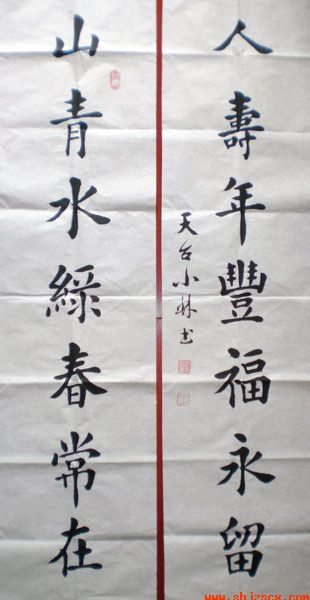 人壽年豐福永留
山青水綠春常在
天台小林书
www.shizscx.com